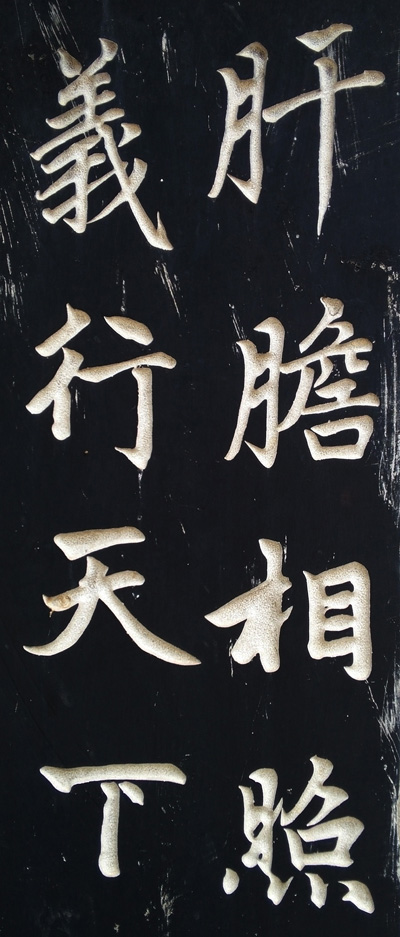 肝膽相照
義行天下